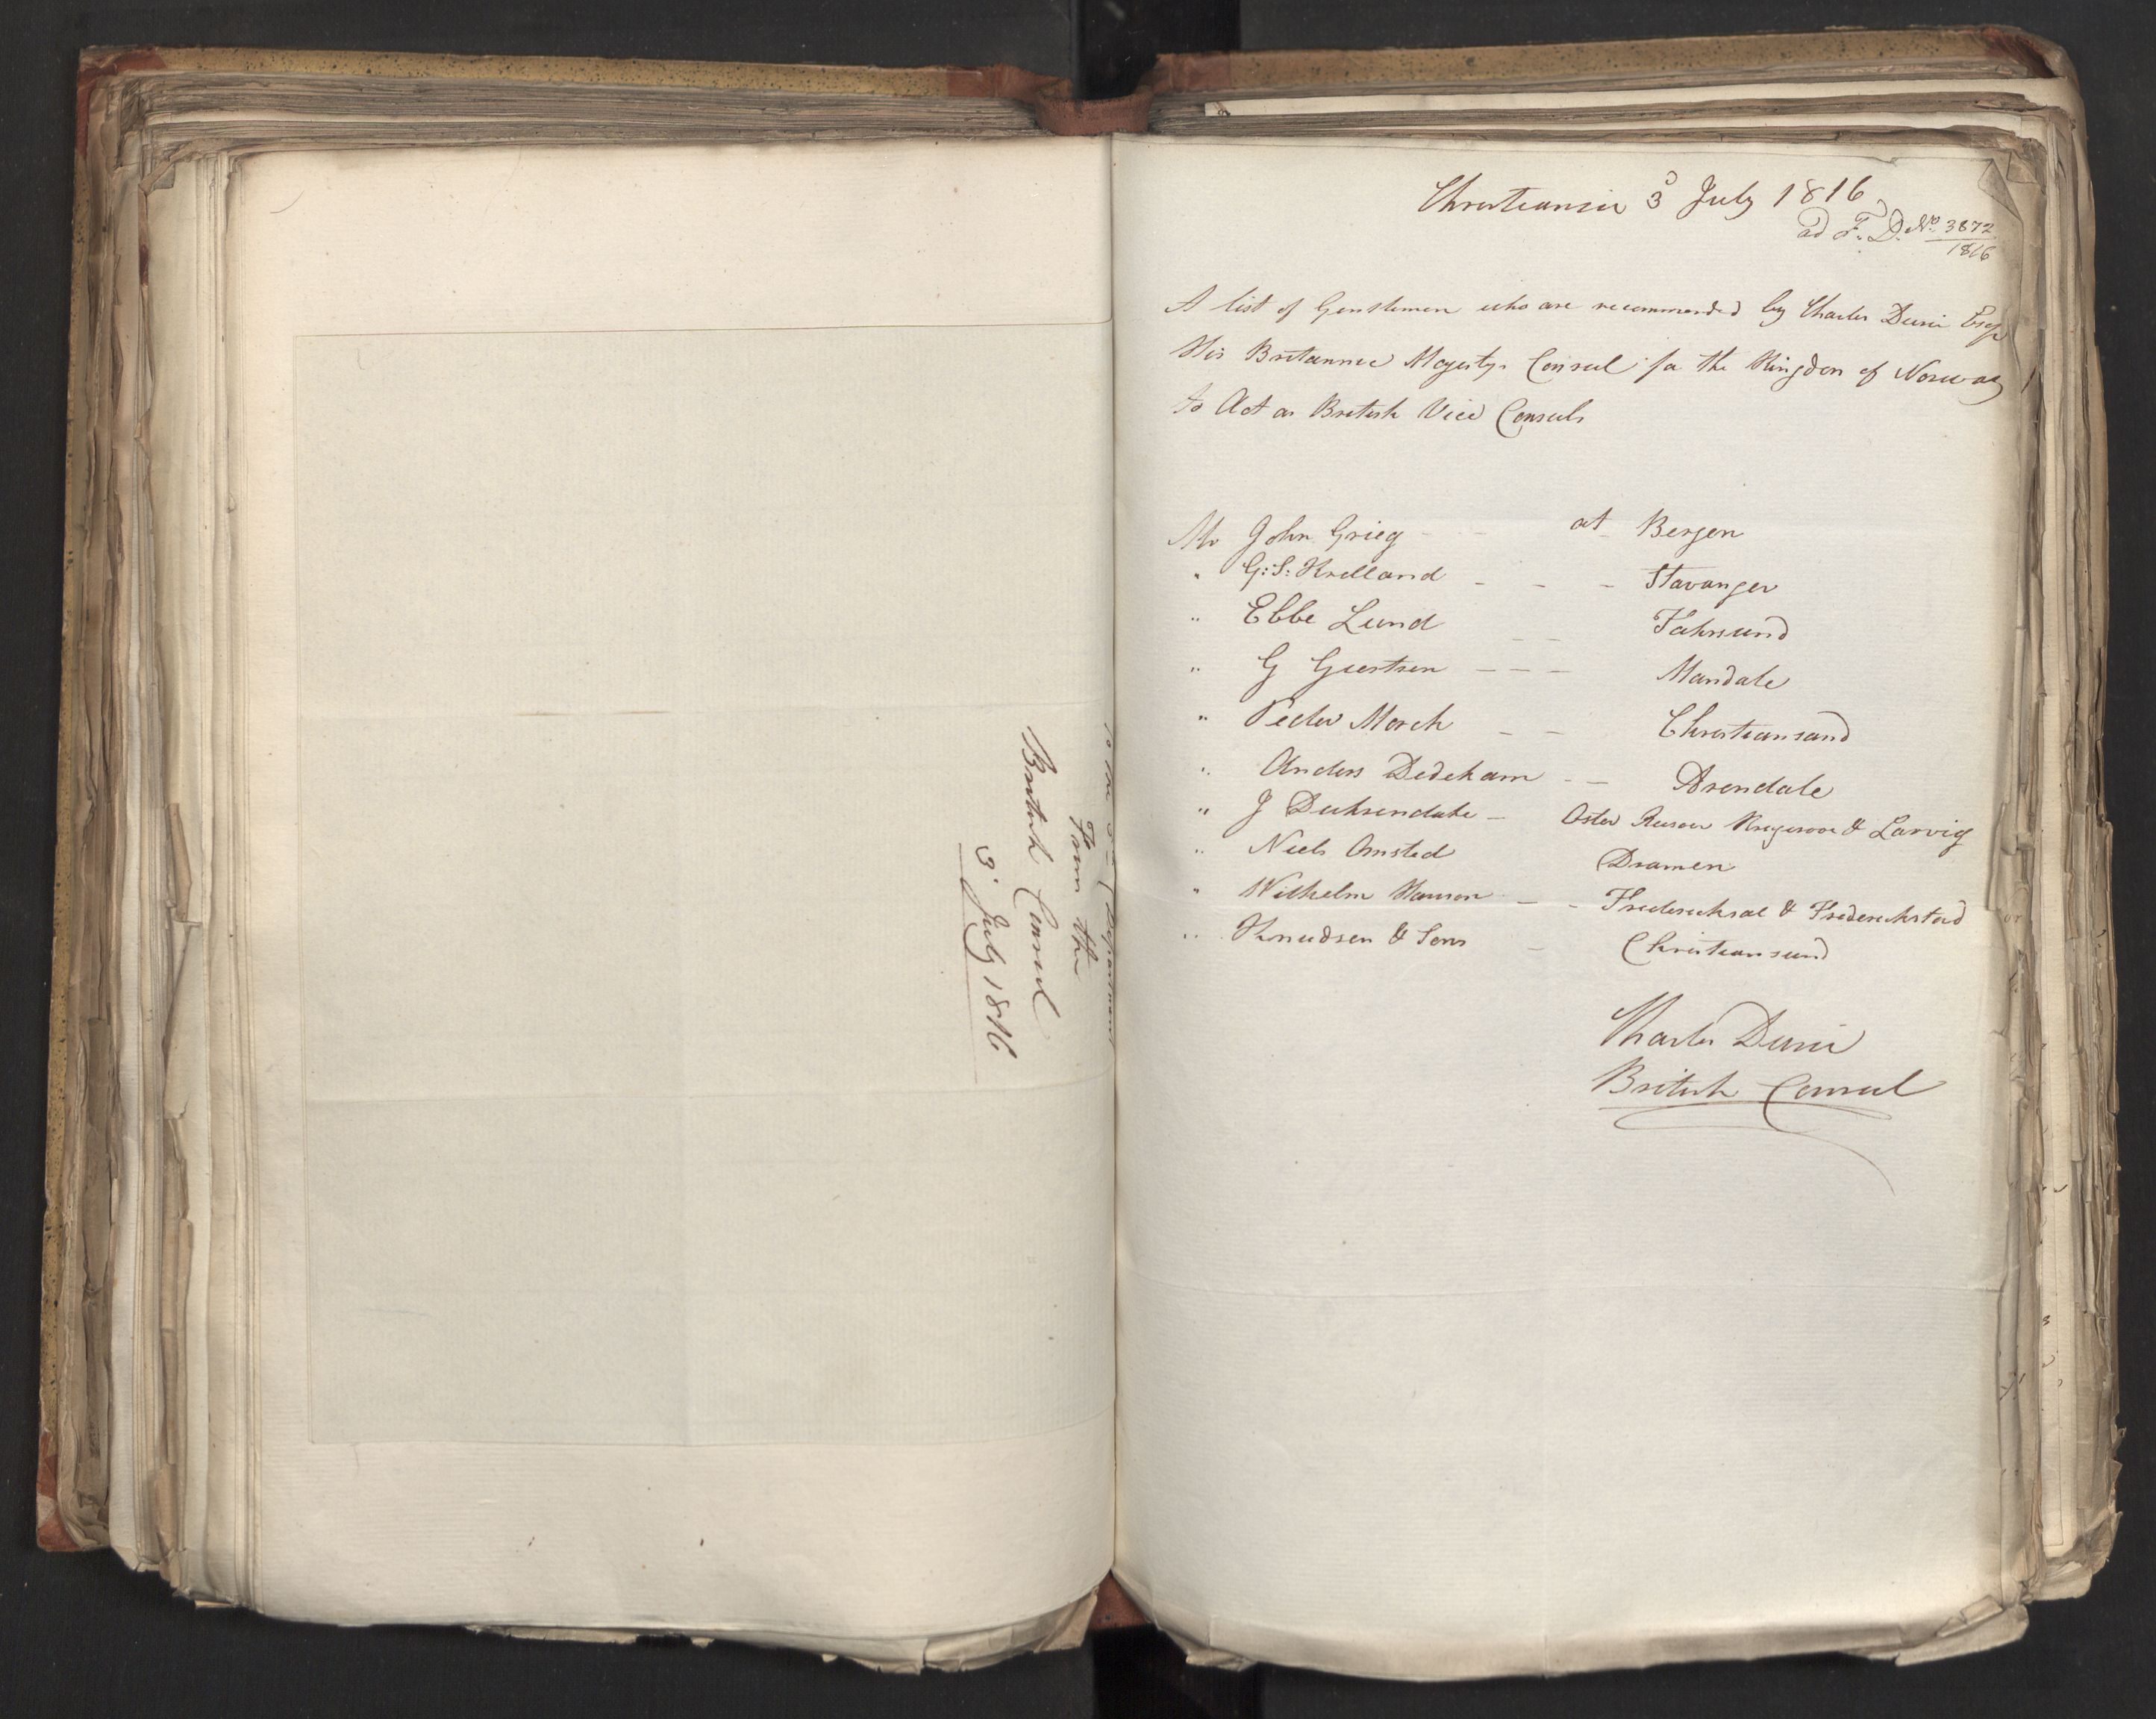 To the 5th Department
To
From the
British Consul
3d July 1816
Christiania 3d July 1816
ad F. D. No 3872
1816
A list of Gentlemen who are recommended by Charles Esqr
His Britannic Majestys Consul for the Kingdom of Norway
to Act as British Vice Consuls
Mr John Grieg - - at Bergen
" G: S: Kielland - - - Stavanger
" Ebbe Lund - - Fahrsund
" G - - - Mandale
" Peder Morch - - Christiansand
" Anders Dedekam - - Arendale
" J - Oster Riisoer & Larvig
" Niels Omsted Dramen
" Wilhelm Hansson - - & Frederickstad
" Knudsen & Sons - Christiansund
Charles
British Consul